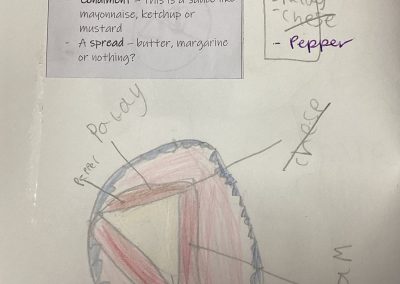 - Condiment – This is a sauce like
mayonnaise, ketchup or
mustard
- A spread – butter, margarine
or nothing?
- Chese
- Pepper
Paty
Pepper
chese